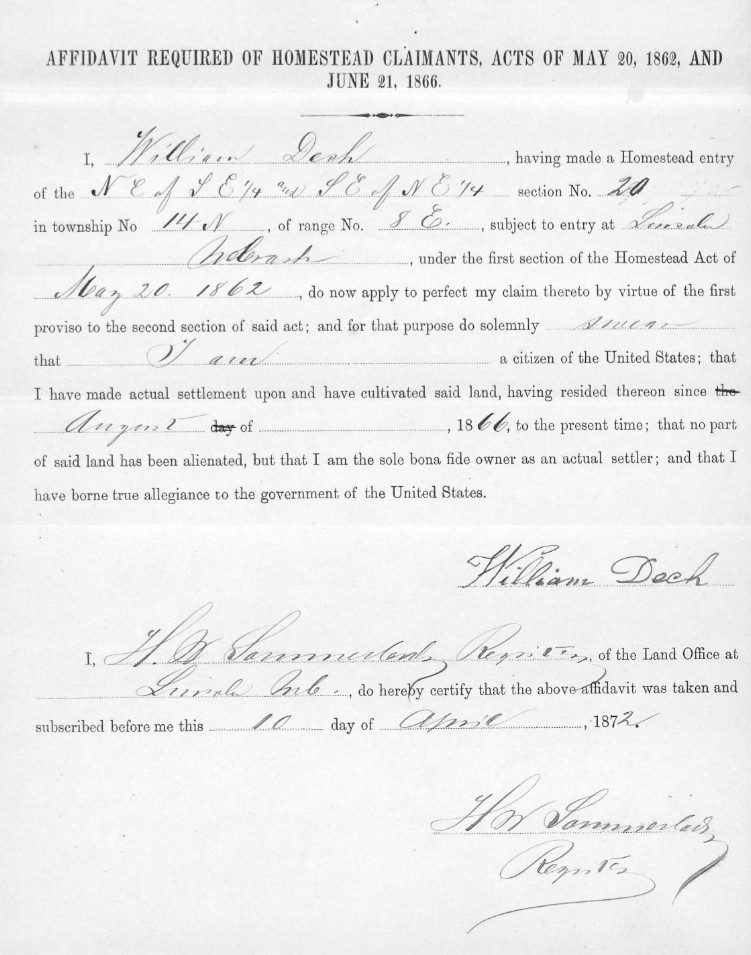 AFFIDAVIT REQUIRED OF HOMESTEAD CLAIMANTS, ACTS OF MAY 20, 1862, AND
JUNE 21, 1866.
I, William Dech, having made a Homestead entry
of the N E of S E 1/4 and S E of N E 1/4 section No. 20
in township No 14 N, of range No. 8 E., subject to entry at Lincoln
Nebrask, under the first section of the Homestead Act of
May 20. 1862, do now apply to perfect my claim thereto by virtue of the first
proviso to the second section of said act; and for that purpose do solemnly swear
that I am a citizen of the United States; that
I have made actual settlement upon and have cultivated said land, having resided thereon since the
August day of , 1866, to the present time; that no part
of said land has been alienated, but that I am the sole bona fide owner as an actual settler; and that I
have borne true allegiance to the government of the United States.
William Dech
I, H. W Sommerlad, Register, of the Land Office at
Lincoln Neb., do hereby certify that the above affidavit was taken and
subscribed before me this 10 day of April, 1872.
H W Sommerlad
Register